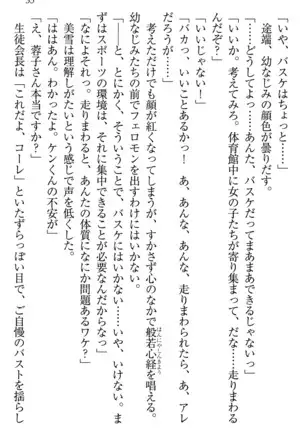 35
「いや、バスケはちょっと……」
途端、幼なじみの顔色が曇りだす。
「……どうしてよっ……あんた、バスケだってまあまあできるじゃない」
「いいか。考えてみろ。体育館中に女の子たちが寄り集まって、だな……走りまわる
んだぞ?」
「いいじゃない!」
「バカっ、いいことあるかっ! あ、あんな、あんな、走りまわられたら、あ、アレ
だろうが」
考えただけでも顔が紅くなってしまうが、すかさず心のなかで般若心経を唱える。ま、
幼なじみたちの前でフェロモンを出すわけにはいかない。
「――と、とにかく、そういうことで、バスケはいかない……いや、いけない。ま
ずはスポーツの環境は、それに集中できることが必要なんだからなっ」
「なによそれっ。走りまわると、あんたの体質になにか問題あるワケ?」
美雪は理解しがたいという感じで声を低くした。
「ははあん。わかったよ、ケンくんの不安が」
「え、蓉子さん本当ですか?」
生徒会長は「これだよ、コーレ」といたずらっぽい目で、ご自慢のバストを揺らし